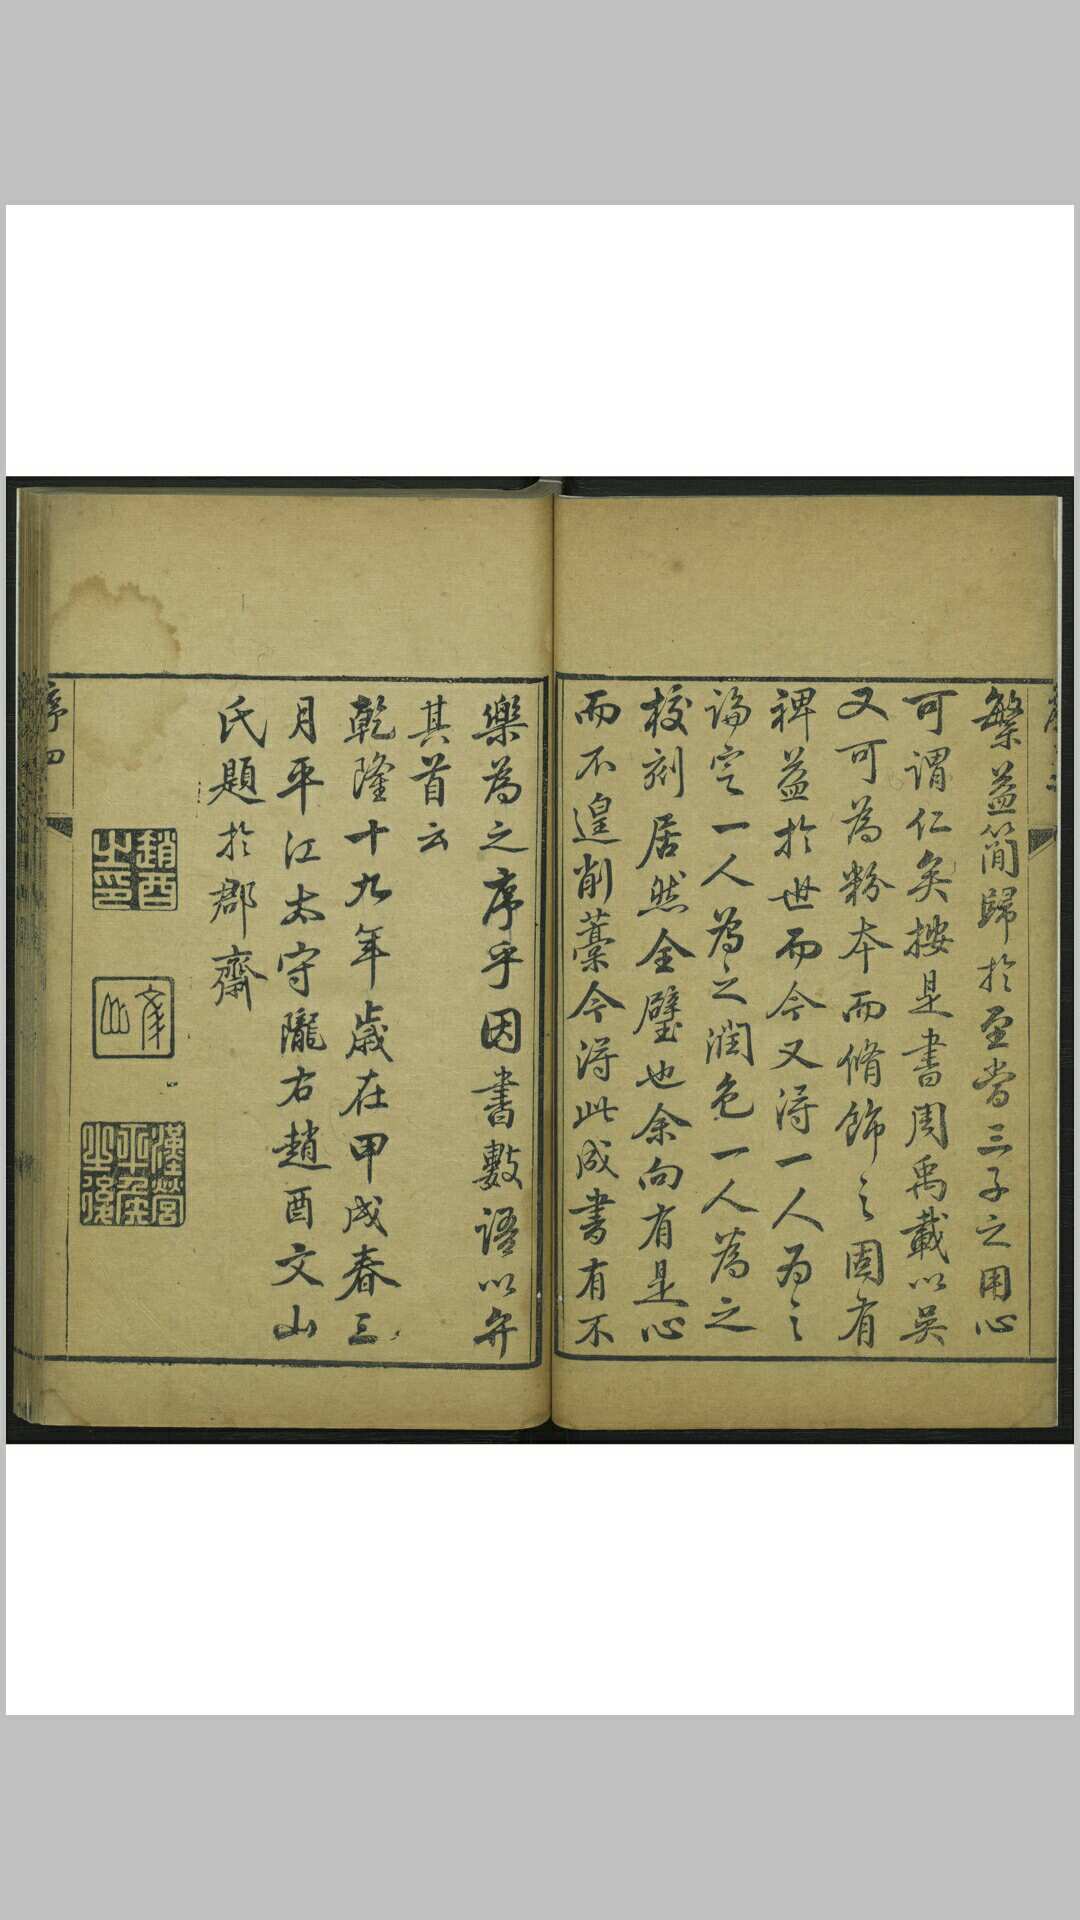 繁益簡歸於至當三子之用心
可謂仁矣按是書周禹載以吳
又可為粉本而脩飾之固有
裨益於世而今又得一人為之
論定一人為之潤色一人為之
校刻居然全璧也余向有是心
而不遑削藁今得此成書有不
樂為之序乎因書數語以弁
其首云
乾隆十九年歲在甲戌春三
月平江太守隴右趙酉文山
氏題於郡齋
趙酉之印
文山
漢營平矦之後
序四